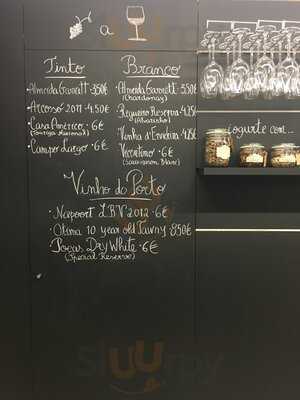 a
Tinto
Almeida Garrett · 3,50€
Arcossó 2011 · 4,50€
Casa Américo · 6€
Campo Largo · 6€
Branco
Almeida Garrett · 5,50€
(Chardonnay)
Regueiro Reserva · 4,25€
(Alvarinho)
Vinha d'Ervideira · 4,25€
· 6€
(Sauvignon Blanc)
Vinho do Porto
· Niepoort LBV 2012 · 6€
10 year old Tawny · 8,50€
Poças Dry White · 6€
(Special Reserve)
iogurte com...
sluurpy